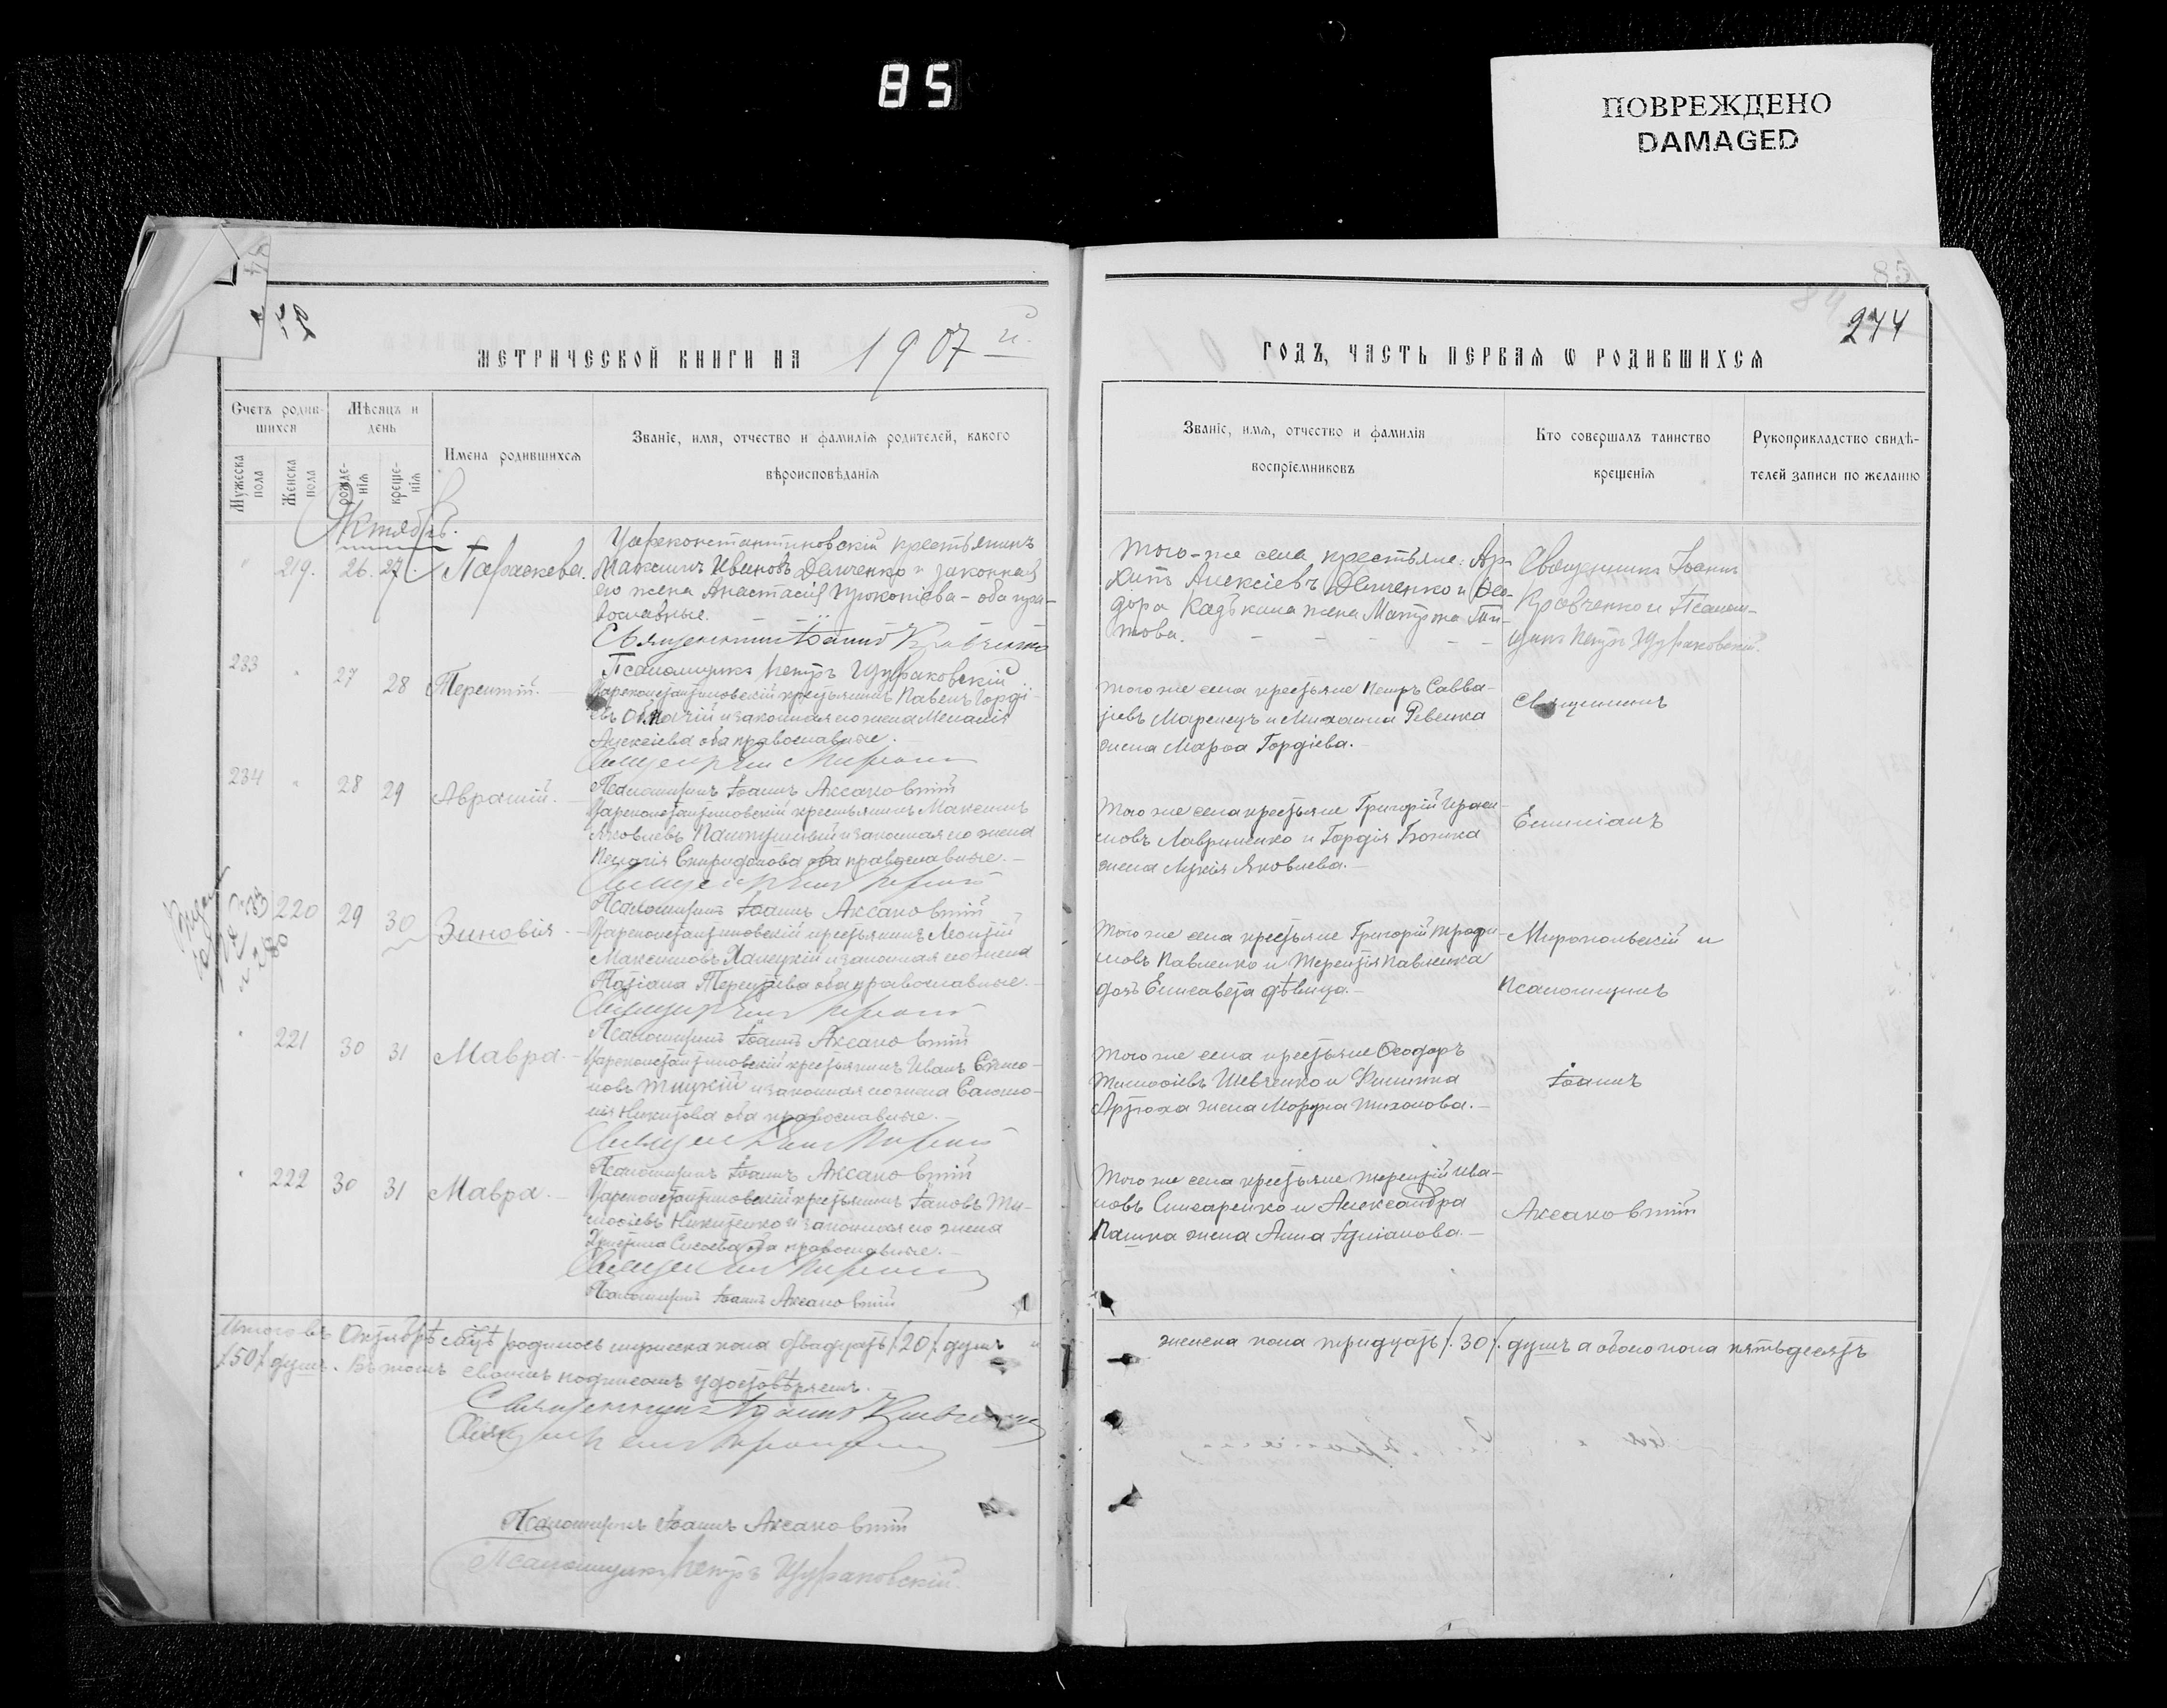 85
ПОВРЕЖДЕНО
DAMAGED
85
84
274
МЕТРИЧЕСКОЙ КНИГИ НА 1907 й.
ГОДЪ, ЧАСТЬ ПЕРВАЯ Ѡ РОДИВШИХСЯ
Счетъ родив-
шихся
Мужеска пола
Женска пола
Мѣсяцъ и
день
рожде-
нія
креще-
нія
Имена родившихся
Званіе, имя, отчество и фамилія родителей, какого
вѣроисповѣданія
Званіе, имя, отчество и фамилія
воспріемниковъ
Кто совершалъ таинство
крещенія
Рукоприкладство свидѣ-
телей записи по желанію
Октябрь.
219. 26. 27 Параскева.
Цареконстантиновскій крестьянинъ
Максимъ Ивановъ Демченко и законная
его жена Анастасія Прокопіева - оба пра-
вославные.
Священникъ Іоаннъ Кравченко
Псаломщикъ Петръ Цуфаковскій
Того-же села крестьяне: Ар-
хипъ Алексіевъ Демченко и Ѳео-
дора Кадъкина жена Матрона Ти-
това.
Священникъ Іоаннъ
Кравченко и Псалом-
щикъ Петръ Цуфаковскій.
233 " 27 28 Терентій.
Цареконстантиновскій крестьянинъ Павелъ Горді-
евъ и законная его жена Меланія
Алексіева оба православные.
Псаломщикъ Іоаннъ Аксаковскій
Того же села крестьяне Петръ Савва-
тіевъ Маренецъ и Михаила Ревенка
жена Марѳа Гордіева.
Священникъ
234 " 28 29 Аврамій.
Цареконстантиновскій крестьянинъ Максимъ
Яковлевъ и законная его жена
Пелагія Спиридонова оба православные.
Псаломщикъ Іоаннъ Аксаковскій
Того же села крестьяне Григорій Гераси-
мовъ Лавриненко и Гордія Божка
жена Лукія Яковлева.
Емиліанъ
220 29 30 Зиновія.
Цареконстантиновскій крестьянинъ Леонтій
Максимовъ Халецкій и законная его жена
Татіана Терентіева оба православные.
Псаломщикъ Іоаннъ Аксаковскій
Того же села крестьяне Григорій Трофи-
мовъ Павленко и Терентія Павленка
дочь Елисавета дѣвица.
Миропольскій и
Псаломщикъ
" 221 30 31 Мавра.
Цареконстантиновскій крестьянинъ Иванъ Симо-
новъ и законная его жена Саломо-
нія Никитова оба православные.
Псаломщикъ Іоаннъ Аксаковскій
Того же села крестьяне Ѳеодоръ
Тимоѳіевъ Шевченко и Филиппа
Артюха жена Марѳа Тихонова.
Іоаннъ
" 222 30 31 Мавра.
Цареконстантиновскій крестьянинъ Іаковъ Ти-
моѳіевъ Никитенко и законная его жена
Христина Сисоева оба православные.
Псаломщикъ Іоаннъ Аксаковскій
Того же села крестьяне Терентій Ива-
новъ Слисаренко и Александра
Пашка жена Анна Іуліанова.
Аксаковскій
Итого въ Октябрѣ м-цѣ родилось мужеска пола двадцать /20/ душъ и
женска пола тридцать /.30/. душъ а обоего пола пятьдесятъ
/.50/. душъ. Въ томъ своимъ подписомъ удостовѣряемъ.
Священникъ Іоаннъ Кравченко
Псаломщикъ Іоаннъ Аксаковскій
Псаломщикъ Петръ Цуфаковскій.